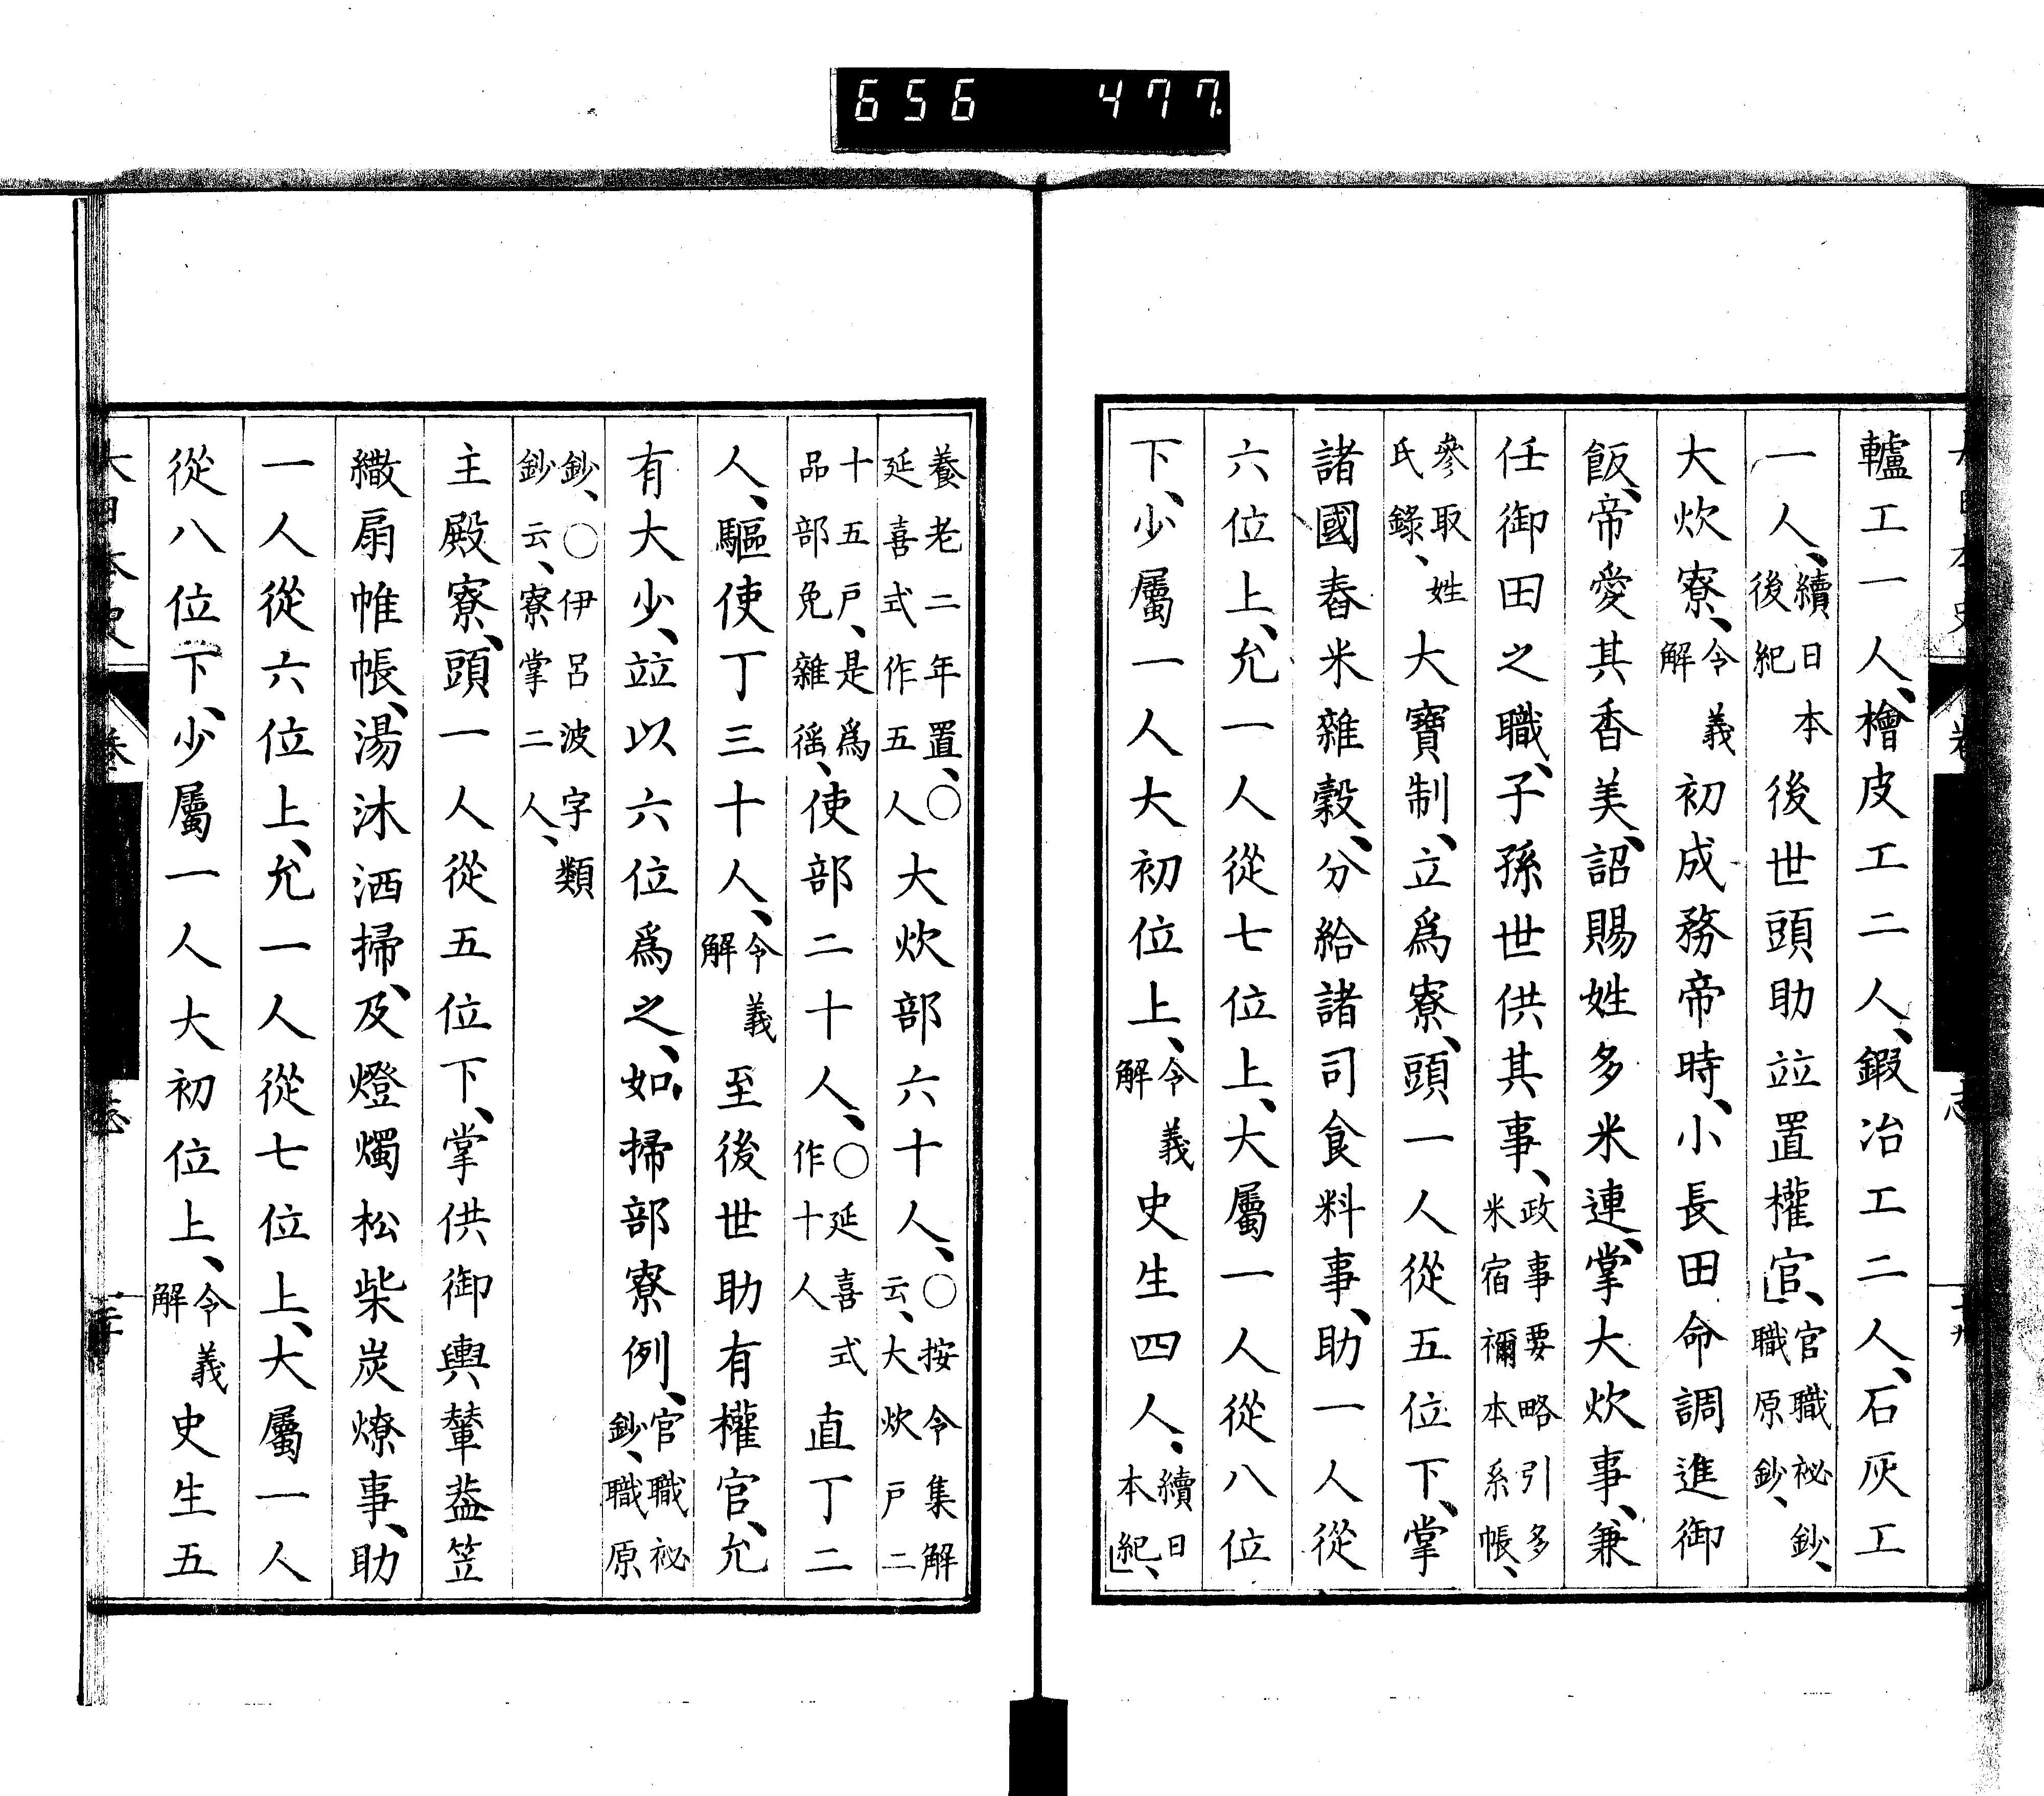 656 477
轤工一人、檜皮工二人、鍜冶工二人、石灰工
一人、續日本後紀後世頭助竝置權官、官職祕鈔、職原鈔、
大炊寮、令義解初成務帝時、小長田命調進御
飯、帝愛其香美、詔賜姓多米連、掌大炊事、兼
任御田之職、子孫世供其事、政事要略引多米宿禰本系帳、
參取姓氏錄、大寶制、立爲寮、頭一人從五位下、掌
諸國舂米雜穀、分給諸司食料事、助一人從
六位上、允一人從七位上、大屬一人從八位
下、少屬一人大初位上、令義解史生四人、續日本紀、
養老二年置、○延喜式作五人大炊部六十人、○按令集解云、大炊戸二
十五戸、是爲品部免雜徭、使部二十人、○延喜式作十人直丁二
人、驅使丁三十人、令義解至後世助有權官、允
有大少、竝以六位爲之、如掃部寮例、官職祕鈔、職原
鈔、○伊呂波字類鈔云、寮掌二人、
主殿寮、頭一人從五位下、掌供御輿輦葢笠
繖扇帷帳、湯沐洒掃、及燈燭松柴炭燎事、助
一人從六位上、允一人從七位上、大屬一人
從八位下、少屬一人大初位上、令義解史生五
大日本史 卷 志